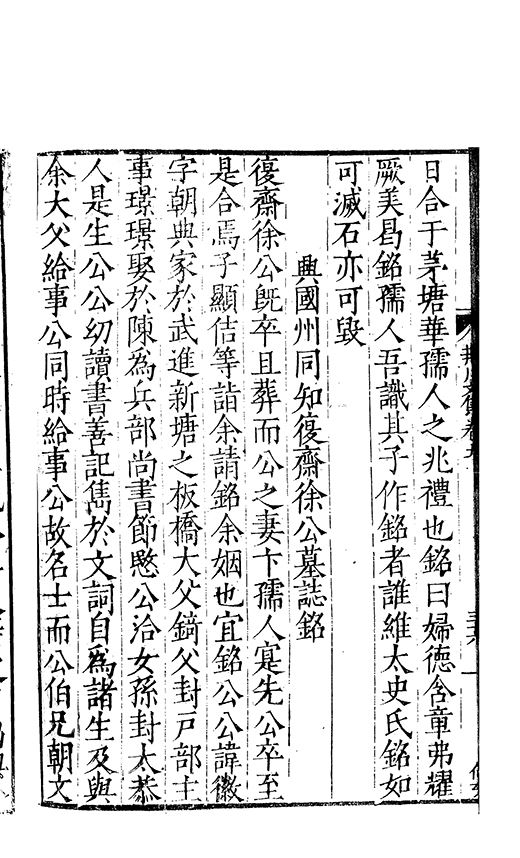 日合于茅塘華孺人之兆禮也銘曰婦德含章弗耀
厥美曷銘孺人吾識其子作銘者誰維太史氏銘如
可滅石亦可毀
興國州同知復齋徐公墓誌銘
復齋徐公旣卒且葬而公之妻卞孺人寔先公卒至
是合焉子顯佶等詣余請銘余姻也宜銘公公諱徽
字朝典家於武進新塘之板橋大父錡父封戸部主
事璟璟娶於陳爲兵部尚書節愍公洽女孫封太恭
人是生公公幼讀書善記雋於文詞自爲諸生及與
余大父給事公同時給事公故名士而公伯兄朝文